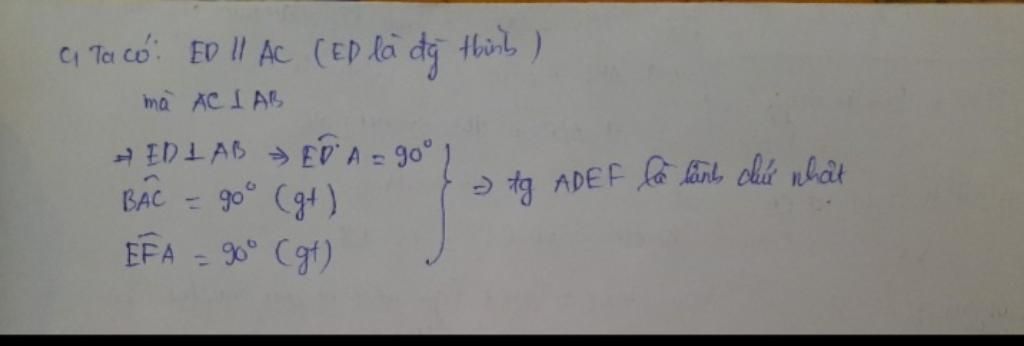 c, Ta có: ED // AC (ED là đg tbình)
mà AC ⊥ AB
⇒ ED ⊥ AB ⇒ ED̂A = 90°
BÂC = 90° (gt)
EF̂A = 90° (gt)
⇒ tg ADEF là hình chữ nhật